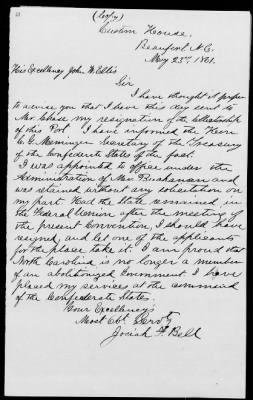 (Copy)
Custom House,
Beaufort N.C.
May 23rd, 1861.
His Excellency John W. Ellis
Sir
I have thought it proper
to advise you that I have this day sent to
Mr. Chase my resignation of the Collectorship
of this Port. I have informed the Hon
C. G. Memminger Secretary of the Treasury
of the Confederate States of the fact.
I was appointed to office under the
Administration of Mr. Buchanan and
was retained without any solicitation on
my part. Had the State remained in
the Federal Union after the meeting of
the present Convention, I should have
resigned, and let one of the applicants
for the place take it. I am proud that
North Carolina is no longer a member
of an abolitionized Government. I have
placed my services at the command
of the Confederate States.
Your Excellency's
Most Obt. Servt
Josiah F. Bell